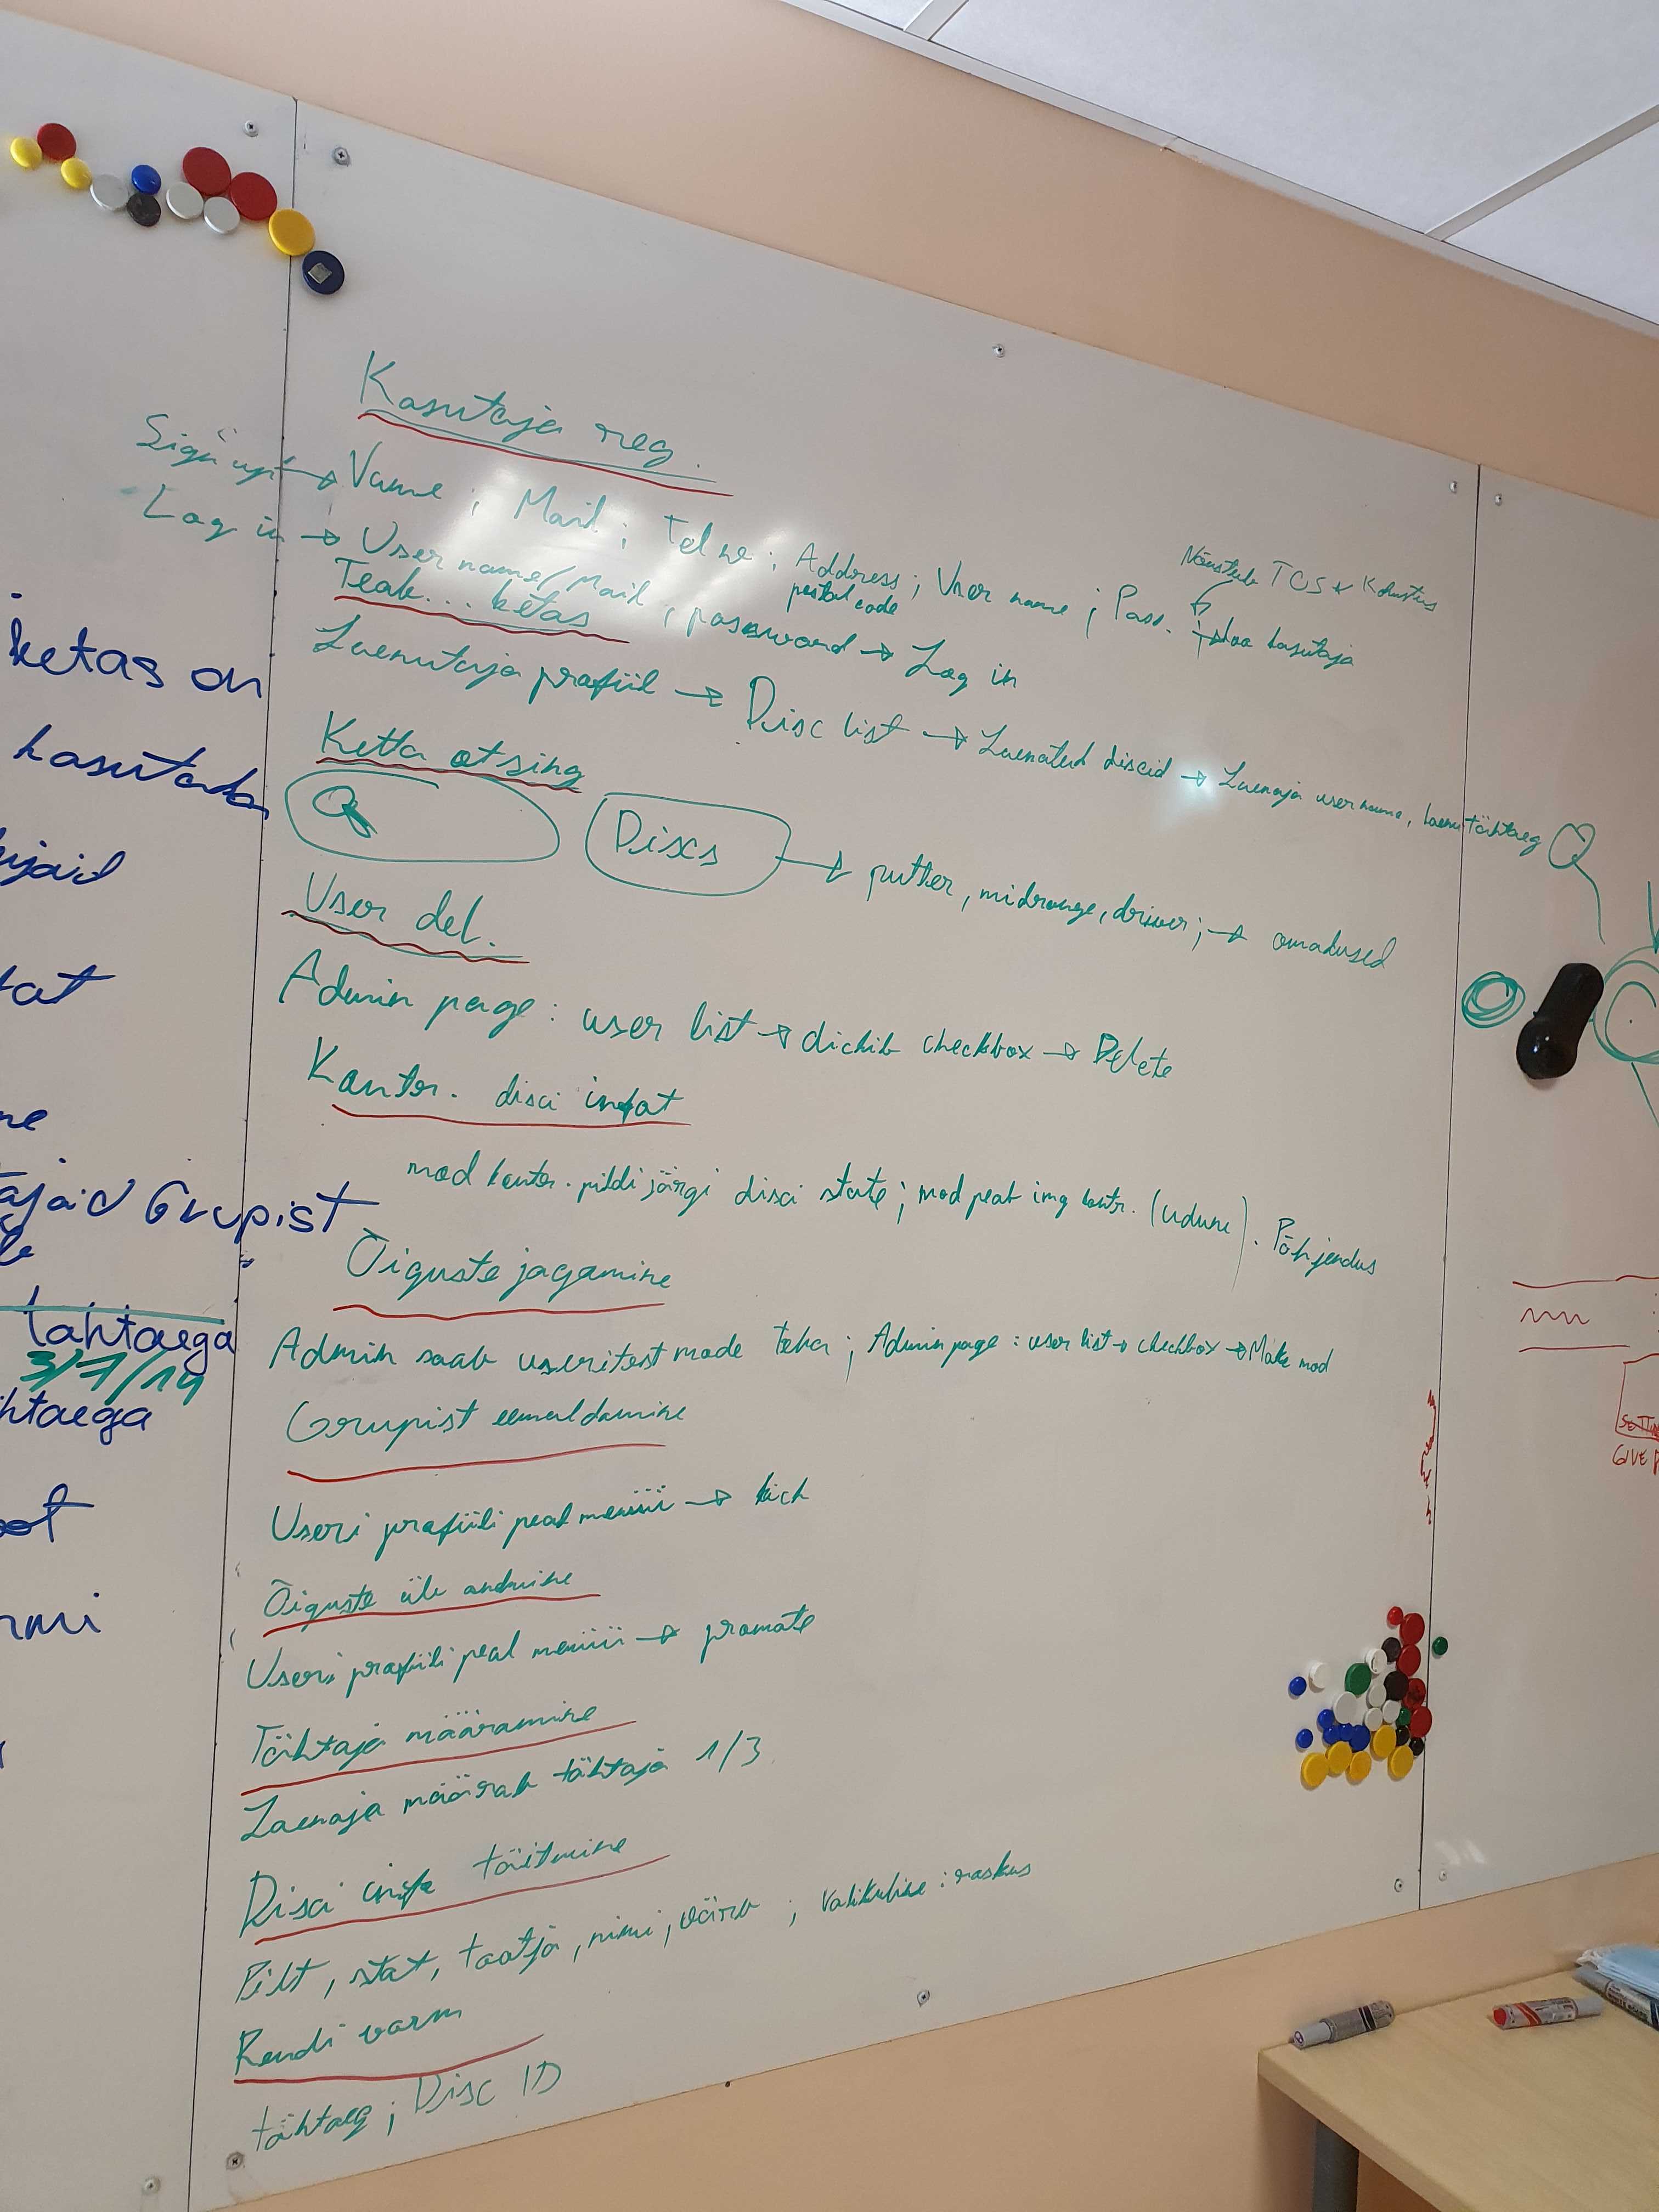 Kasutaja reg.
Sign up → Name ; Mail ; Tel nr ; Address ; User name ; Pass. → loo kasutaja
postal code
Nõustub TOS + Kohustus
Log in → User name/Mail ; password → Log in
Teab... ketas
Laenutaja profiil → Disc list → Laenatud discid → Laenaja username, laenu tähtaeg
Ketta otsing
Discs → putter, midrange, driver; → omadused
User del.
Admin page : user list → clickib checkbox → Delete
Kontr. disci infot
mod kontr. pildi järgi disci state ; mod peab img kontr. (udune). Põhjendus
Õiguste jagamine
Admin saab useritest mode teha ; Admin page : user list → checkbox → Make mod
Grupist eemaldamine
Useri profiili peal menüü → kick
Õiguste üle andmine
Useri profiili peal menüü → promote
Tähtaja määramine
Laenaja määrab tähtaja 1/3
Disci info täitmine
Pilt, stat, tootja, nimi, värv ; Valikuline : raskus
Rendi vorm
tähtaeg ; Disc ID
ketas on
kasutaba
jaid
tat
ne
ajaid Grupist
b
tähtaega
3/7/14
htaega
oot
rmi
GIVE